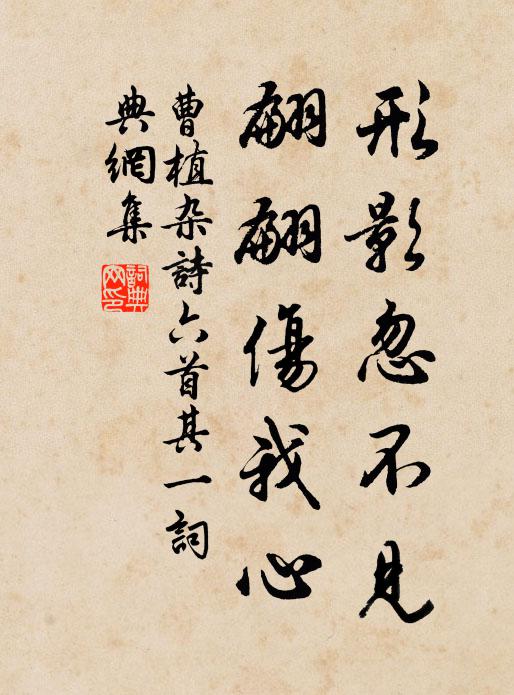 形影忽不見
翩翩傷我心
曹植杂詩六首其一詞
典網集
詞典
网印